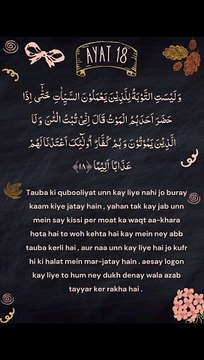 AYAT 18
وَلَيْسَتِ التَّوْبَةُ لِلَّذِيْنَ يَعْمَلُوْنَ السَّيِّاٰتِ حَتّٰٓى اِذَا
حَضَرَ اَحَدَهُمُ الْمَوْتُ قَالَ اِنِّىْ تُبْتُ الْـٰٔنَ وَلَا
الَّذِيْنَ يَمُوْتُوْنَ وَهُمْ كُفَّارٌ اُولٰٓئِكَ اَعْتَدْنَا لَهُمْ
عَذَابًا اَلِيْمًا ﴿۱۸﴾
Tauba ki qubooliyat unn kay liye nahi jo buray
kaam kiye jatay hain , yahan tak kay jab unn
mein say kissi per moat ka waqt aa-khara
hota hai to woh kehta hai kay mein ney abb
tauba kerli hai , aur naa unn kay liye hai jo kufr
hi ki halat mein mar-jatay hain . aesay logon
kay liye to hum ney dukh denay wala azab
tayyar ker rakha hai .